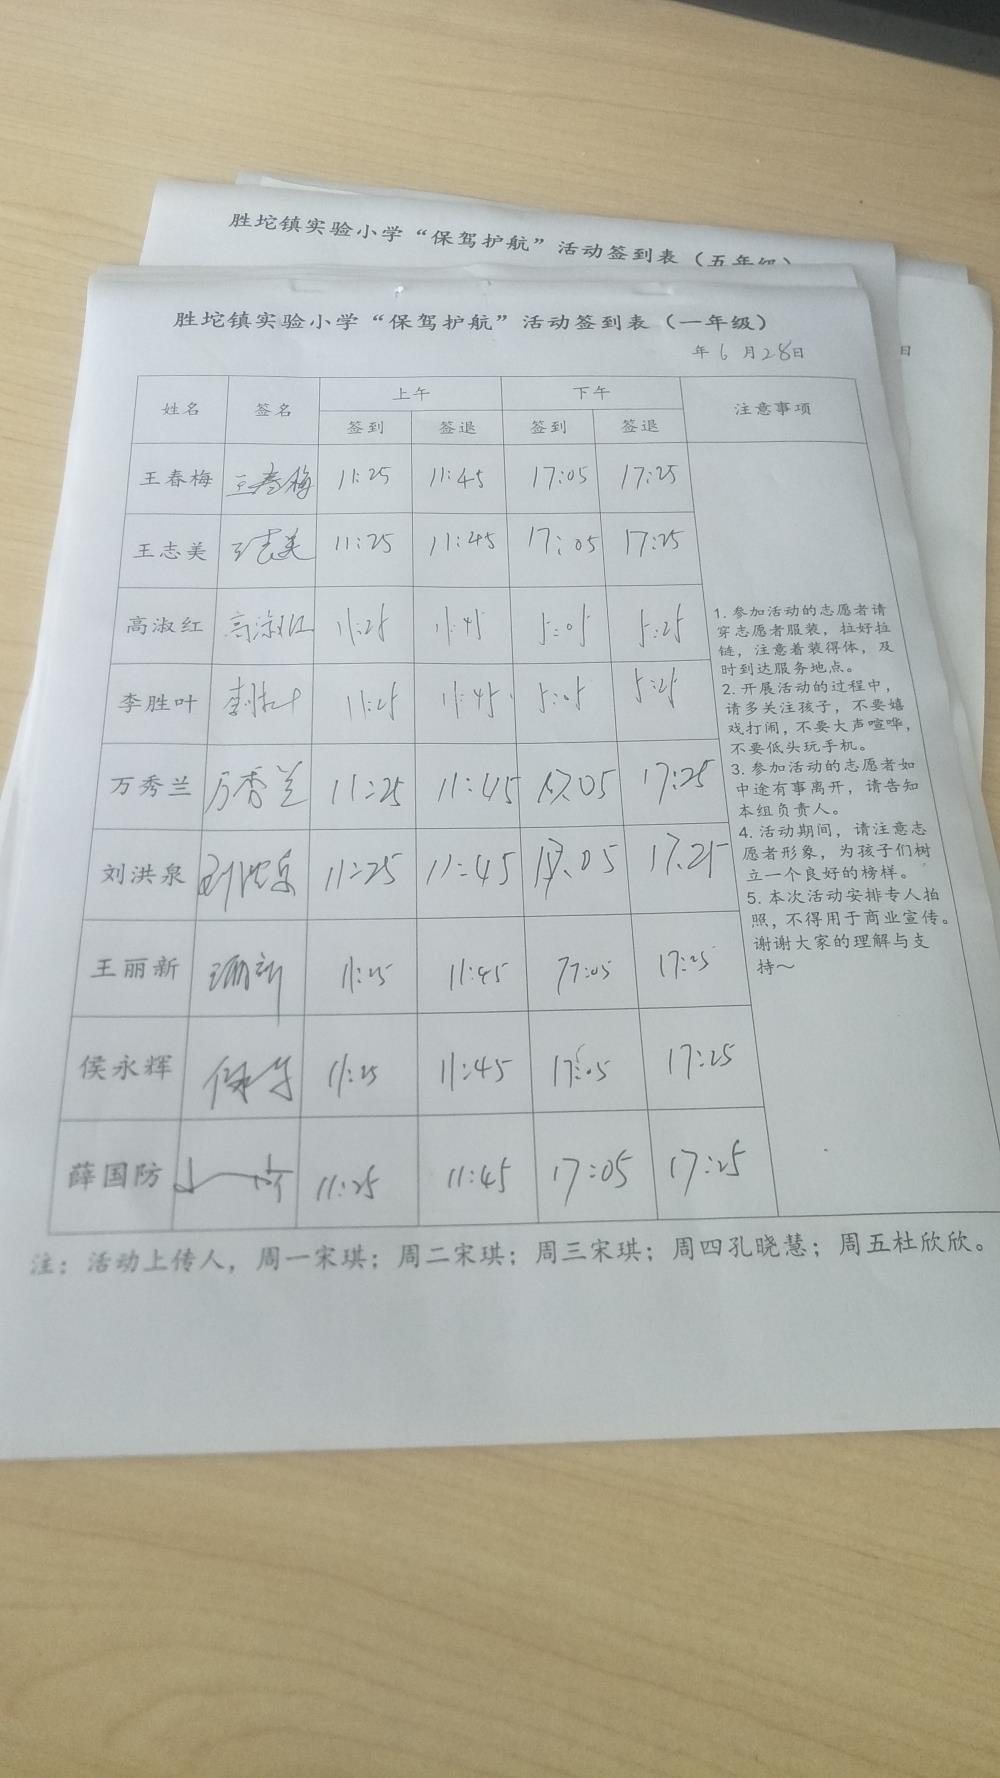 胜坨镇实验小学“保驾护航”活动签到表（五年级）
日
胜坨镇实验小学“保驾护航”活动签到表（一年级）
年 6 月 28 日
姓名 签名 上午 下午 注意事项
签到 签退 签到 签退
王春梅 王春梅 11:25 11:45 17:05 17:25
王志美 王志美 11:25 11:45 17:05 17:25
高淑红 高淑红 11:25 11:45 5:05 5:25
李胜叶 李胜叶 11:25 11:45 5:05 5:25
万秀兰 万秀兰 11:25 11:45 17:05 17:25
刘洪泉 刘洪泉 11:25 11:45 17:05 17:25
王丽新 王丽新 11:25 11:45 17:05 17:25
侯永辉 11:25 11:45 17:05 17:25
薛国防 11:25 11:45 17:05 17:25
1. 参加活动的志愿者请
穿志愿者服装，拉好拉
链，注意着装得体，及
时到达服务地点。
2. 开展活动的过程中，
请多关注孩子，不要嬉
戏打闹，不要大声喧哗，
不要低头玩手机。
3. 参加活动的志愿者如
中途有事离开，请告知
本组负责人。
4. 活动期间，请注意志
愿者形象，为孩子们树
立一个良好的榜样。
5. 本次活动安排专人拍
照，不得用于商业宣传。
谢谢大家的理解与支
持～
注：活动上传人，周一宋琪；周二宋琪；周三宋琪；周四孔晓慧；周五杜欣欣。